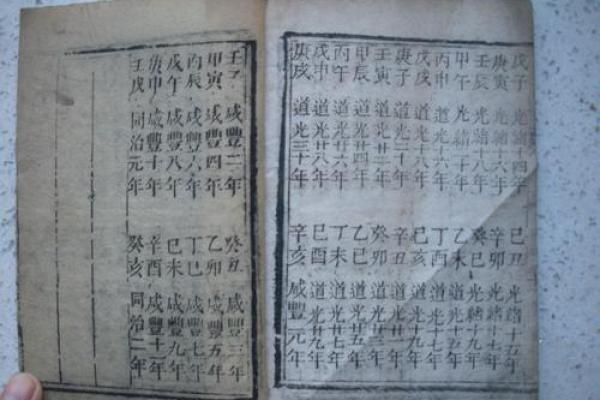 戊子 光緒十四年 己丑 光緒十五年
庚寅 光緒十六年 辛卯 光緒十七年
壬辰 光緒十八年 癸巳 光緒十九年
甲午 光緒二十年 乙未 道光十五年
丙申 道光十六年 丁酉 道光十七年
戊戌 道光十八年 己亥 道光十九年
庚子 道光二十年 辛丑 道光廿一年
壬寅 道光廿二年 癸卯 道光廿三年
甲辰 道光廿四年 乙巳 道光廿五年
丙午 道光廿六年 丁未 道光廿七年
戊申 道光廿八年 己酉 道光廿九年
庚戌 道光三十年 辛亥 咸豐元年
壬子 咸豐二年 癸丑 咸豐三年
甲寅 咸豐四年 乙卯 咸豐五年
丙辰 咸豐六年 丁巳 咸豐七年
戊午 咸豐八年 己未 咸豐九年
庚申 咸豐十年 辛酉 咸豐十一年
壬戌 同治元年 癸亥 同治二年